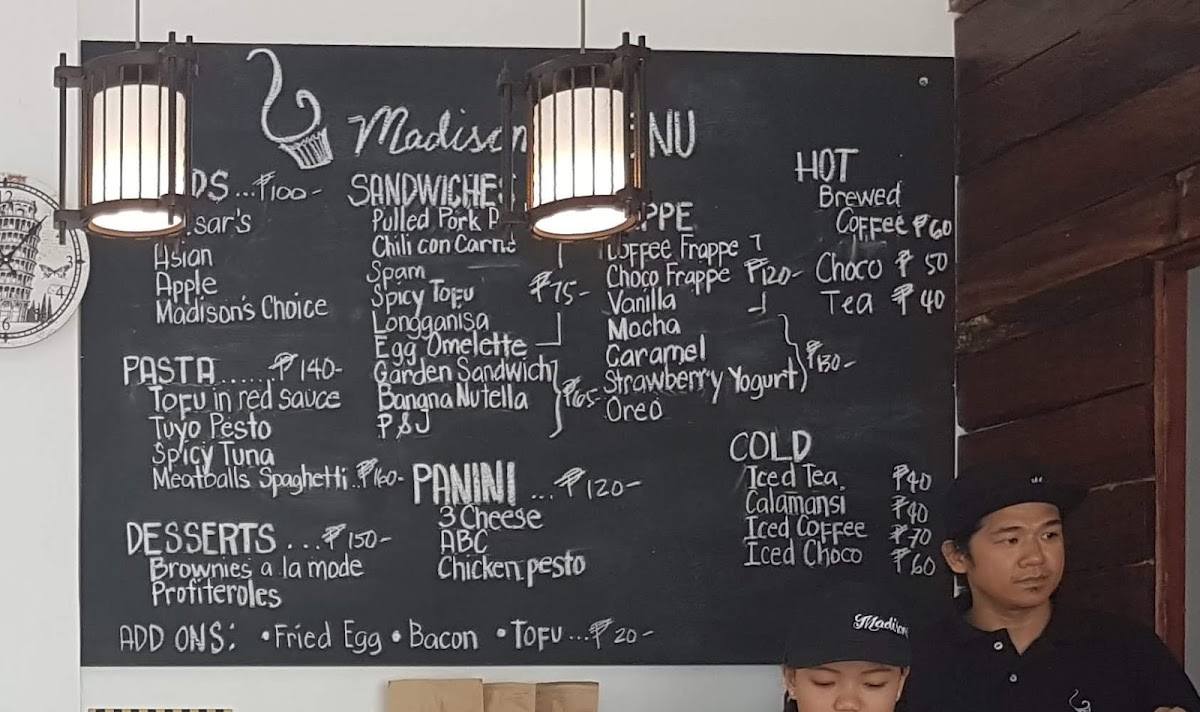 Madison
NU
DS...₱100-
sar's
Asian
Apple
Madison's Choice
PASTA.....₱140-
Tofu in red sauce
Tuyo Pesto
Spicy Tuna
Meatballs Spaghetti..₱160-
DESSERTS...₱150-
Brownies a la mode
Profiteroles
SANDWICHES
Pulled Pork
Chili con Carne
Spam
Spicy Tofu ₱75-
Longganisa
Egg Omelette
Garden Sandwich
Banana Nutella ₱65-
P&J
PANINI...₱120-
3 Cheese
ABC
Chicken pesto
PPE
Coffee Frappe
Choco Frappe ₱120-
Vanilla
Mocha
Caramel ₱130-
Strawberry Yogurt
Oreo
HOT
Brewed
Coffee ₱60
Choco ₱50
Tea ₱40
COLD
Iced Tea ₱40
Calamansi ₱40
Iced Coffee ₱70
Iced Choco ₱60
ADD ONS: •Fried Egg •Bacon •Tofu...₱20-
Madison